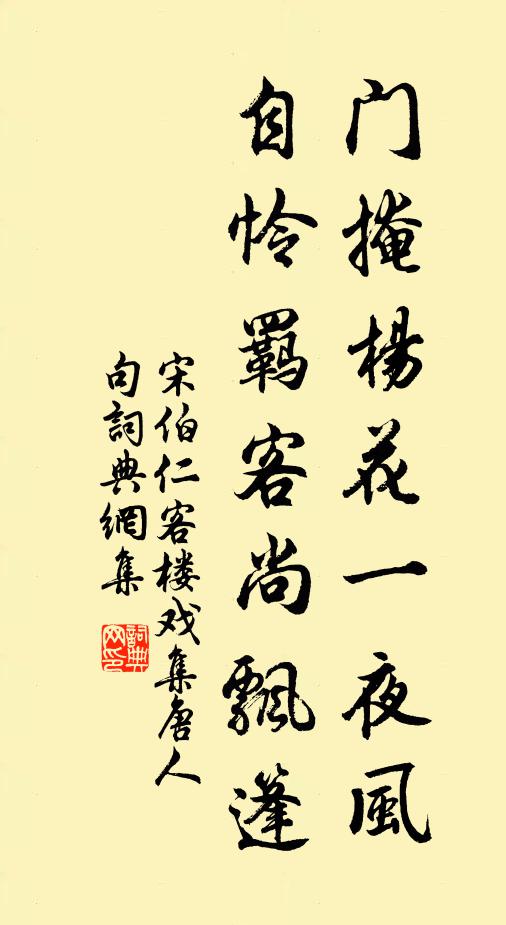 门掩楊花一夜風
自怜羈客尚飄蓬
宋伯仁客楼戏集唐人
句詞典網集
詞典
网印